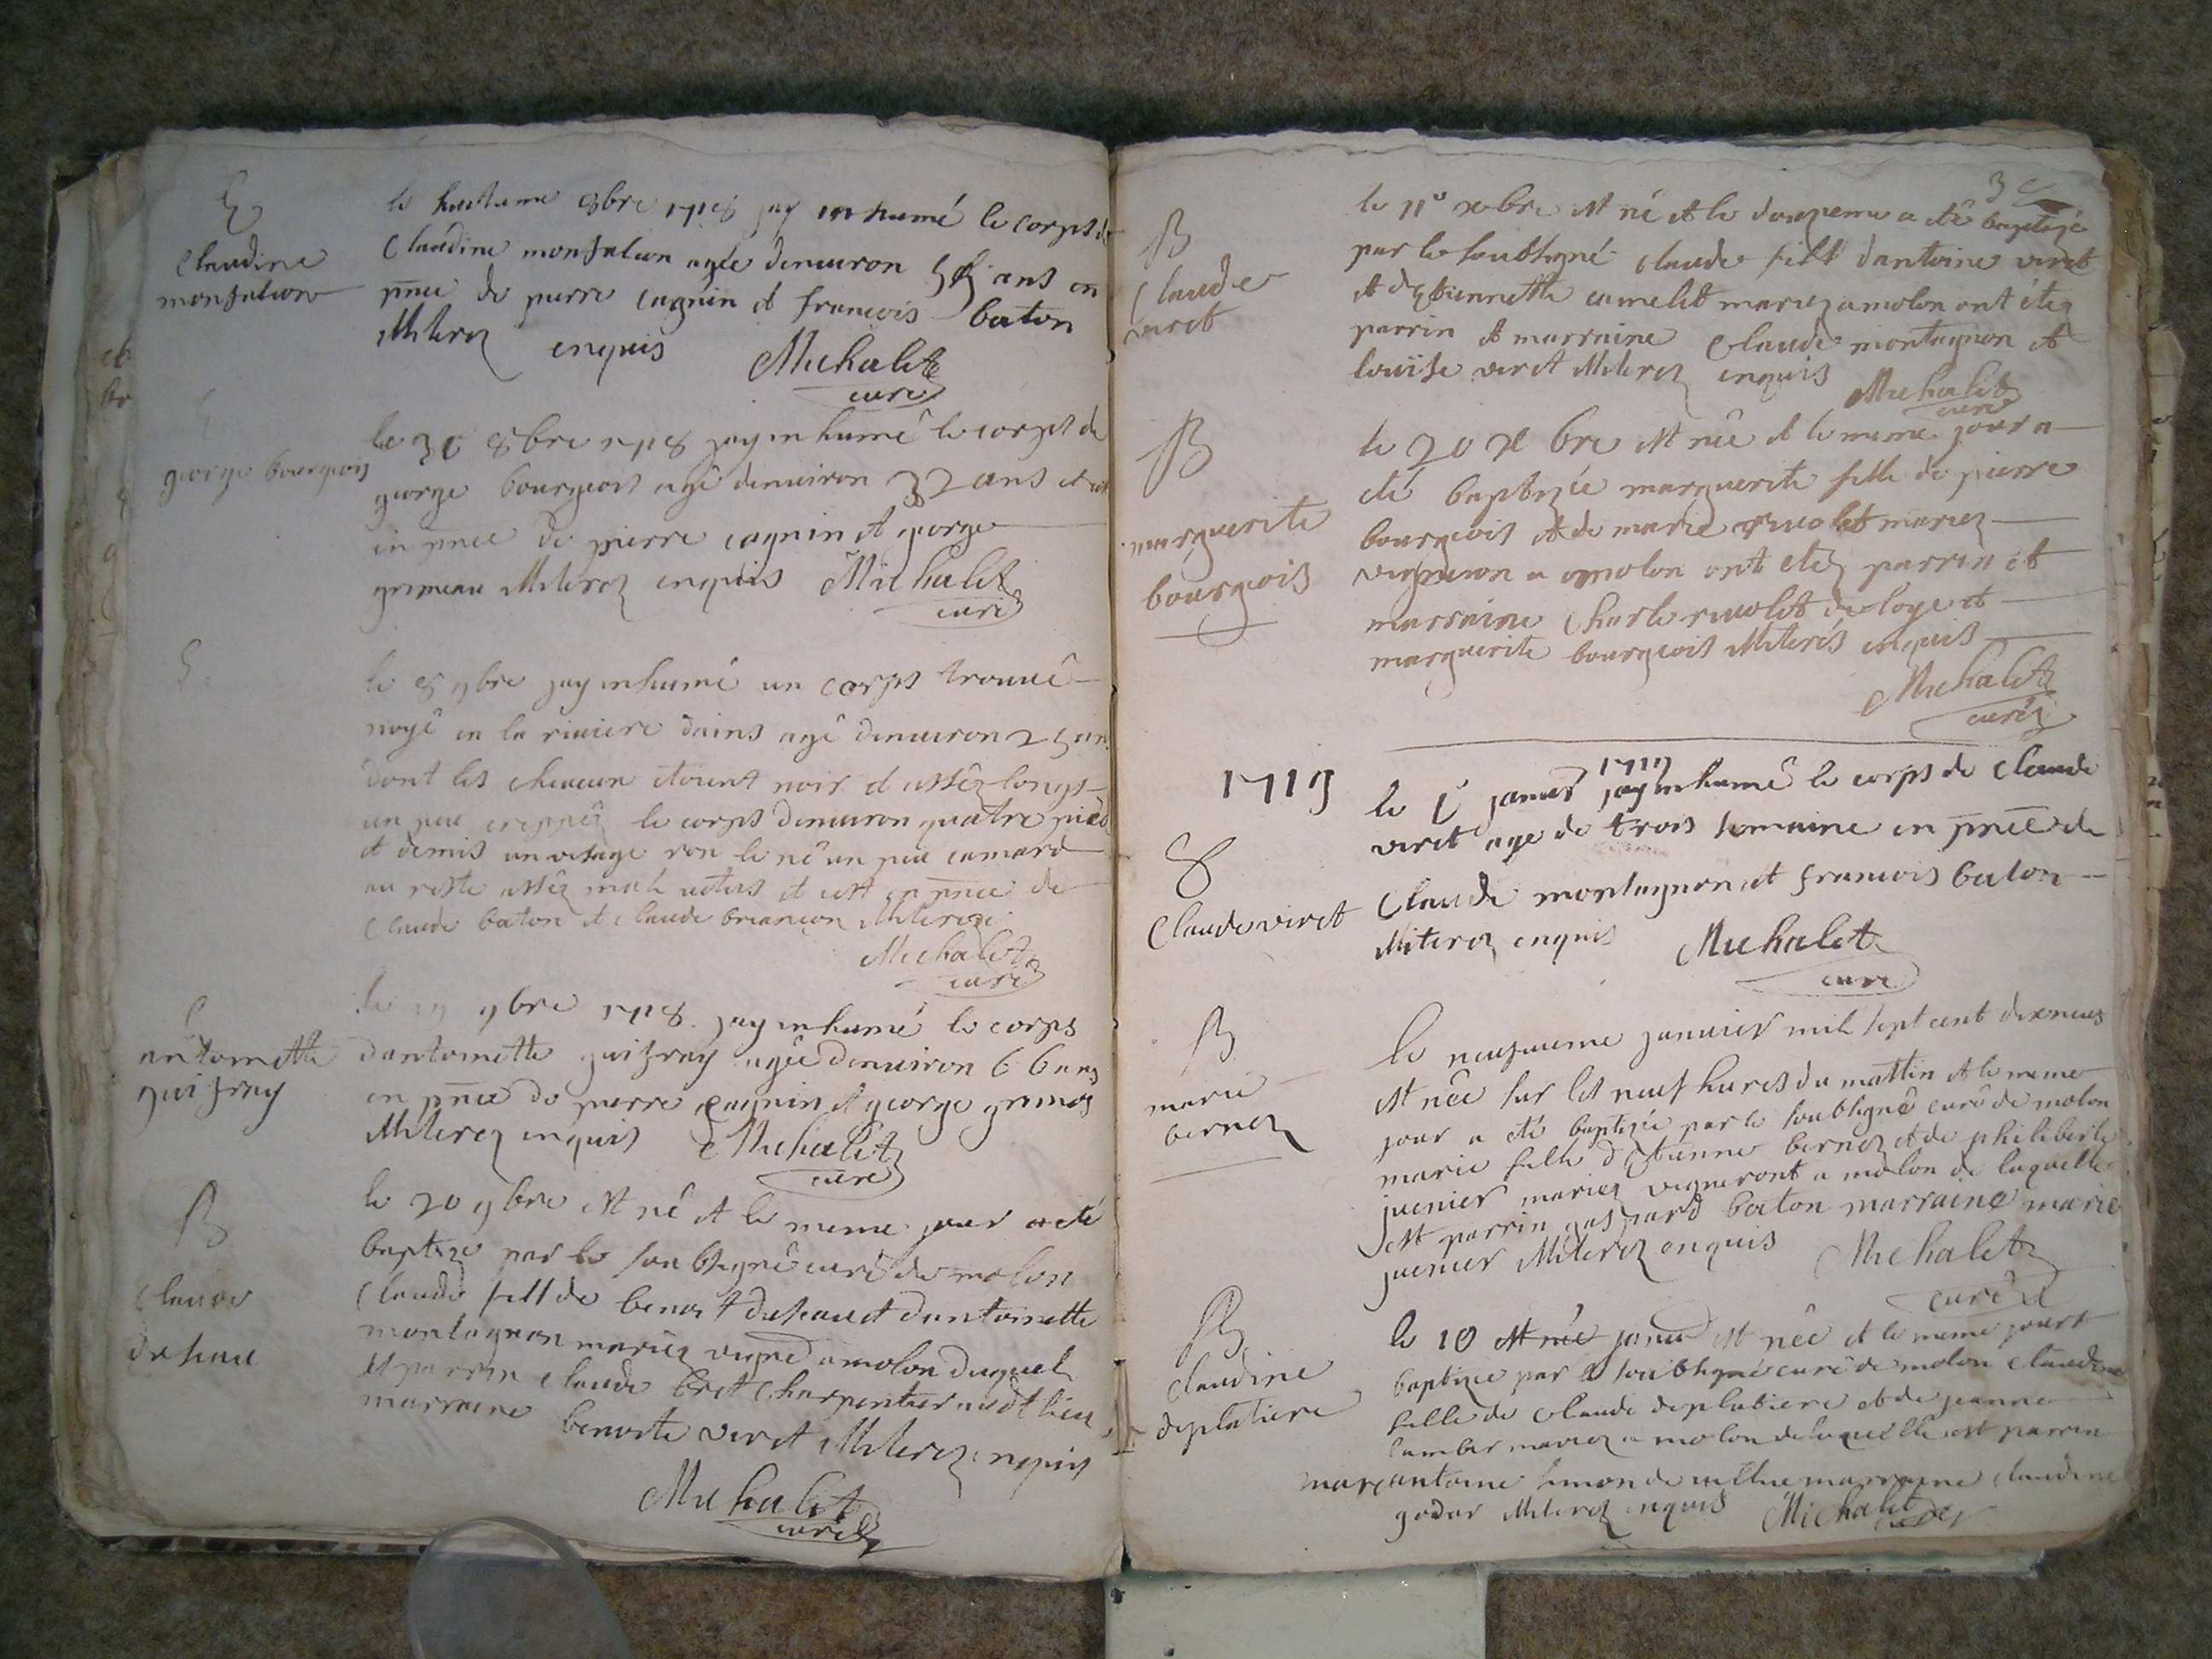 claudine
le huitieme 8bre 1718 jay inhumé le corps de
claudine agée denuiron ans en
pnce de pierre cagnin et francois baton
illiterez enquis Michalet
curé
george bourgeois
le 8bre 1718 jay inhumé le corps de
george bourgeois agé denuiron 32 ans
en pnce de pierre cagnin et george
grimeau illiterez enquis Michalet
curé
le 8 9bre jay inhumé un corps trouué
noyé en la riuiere dains agé denuiron 25 ans
dont les cheueux etoient noir et assez longs
un peu creppez le corps denuiron quatre pied
et demis un visage ron le né un peu camard
au reste assez mal uetus et cest en pnce de
claude baton et claude briancon illiterez
Michalet
curé
antoinette
guifray
le 19 9bre 1718 jay inhumé le corps
dantoinette guifray agée denuiron 66 ans
en pnce de pierre cagnin et george
illiterez enquis Michalet
curé
B
claude
duhaut
le 20 9bre est né et le meme jour a eté
baptizé par le soubsigné curé de molon
claude fils de benoit duhaut et dantoinette
montagnon mariez vigne a molon duquel
est parrin claude bret charpentier audt lieu
marraine benoite viret illiterez enquis
Michalet
curé
B
claude
viret
le 11e xbre est né et le douzieme a eté baptizé
par le soubsigné claude fils dantoine viret
et detiennette camelet mariez a molon ont etez
parrin et marraine claude montagnon et
louïse viret illiterez enquis
Michalet
curé
B
marguerite
bourgeois
le 20 xbre est née et le meme jour a
eté baptizée marguerite fille de pierre
bourgeois et de marie riuolet mariez
vigneron a molon ont etez parrin et
marraine charle riuolet de loye et
marguerite bourgeois illiterés enquis
Michalet
curé
1719
claude viret
1719
le janvier jay inhumé le corps de claude
viret age de trois semaine en pnce de
claude montagnon et francois baton
illiterez enquis Michalet
curé
B
marie
bernoz
le neufuieme januier mil sept cent dixneuf
est née sur les neuf hures du mattin et le meme
jour a eté baptizée par le soubsigné curé de molon
marie fille detienne bernoz et de philiberte
juenier mariez vigneront a molon de laquelle
est parrin gaspard baton marraine marie
juenier illiterez enquis Michalet
curé
B
claudine
deplatiere
le 10 est née januier est née et le meme jour
baptizée par le soubsigné curé de molon claudine
fille de claude deplatiere et de jeanne
mariez a molon de laquelle est parrin
marc antoine simon de marraine claudine
godar illiterez enquis Michalet
curé